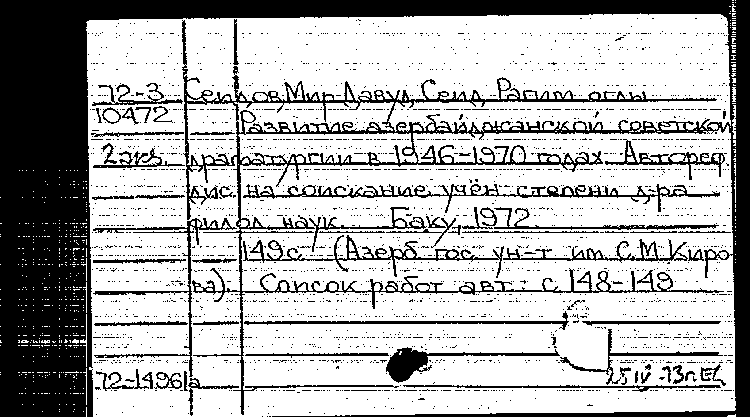 72-3 Сеидов, Мир Давуд Сеид Рагим оглы
10472 Развитие азербайджанской советской
2 экз. драматургии в 1946-1970 годах. Автореф.
дис. на соискание учён. степени д-ра
филол. наук. Баку, 1972.
149с. (Азерб. гос. ун-т им. С.М. Киро-
ва). Список работ авт.: с. 148-149
72-14961а 25 IV-73г.